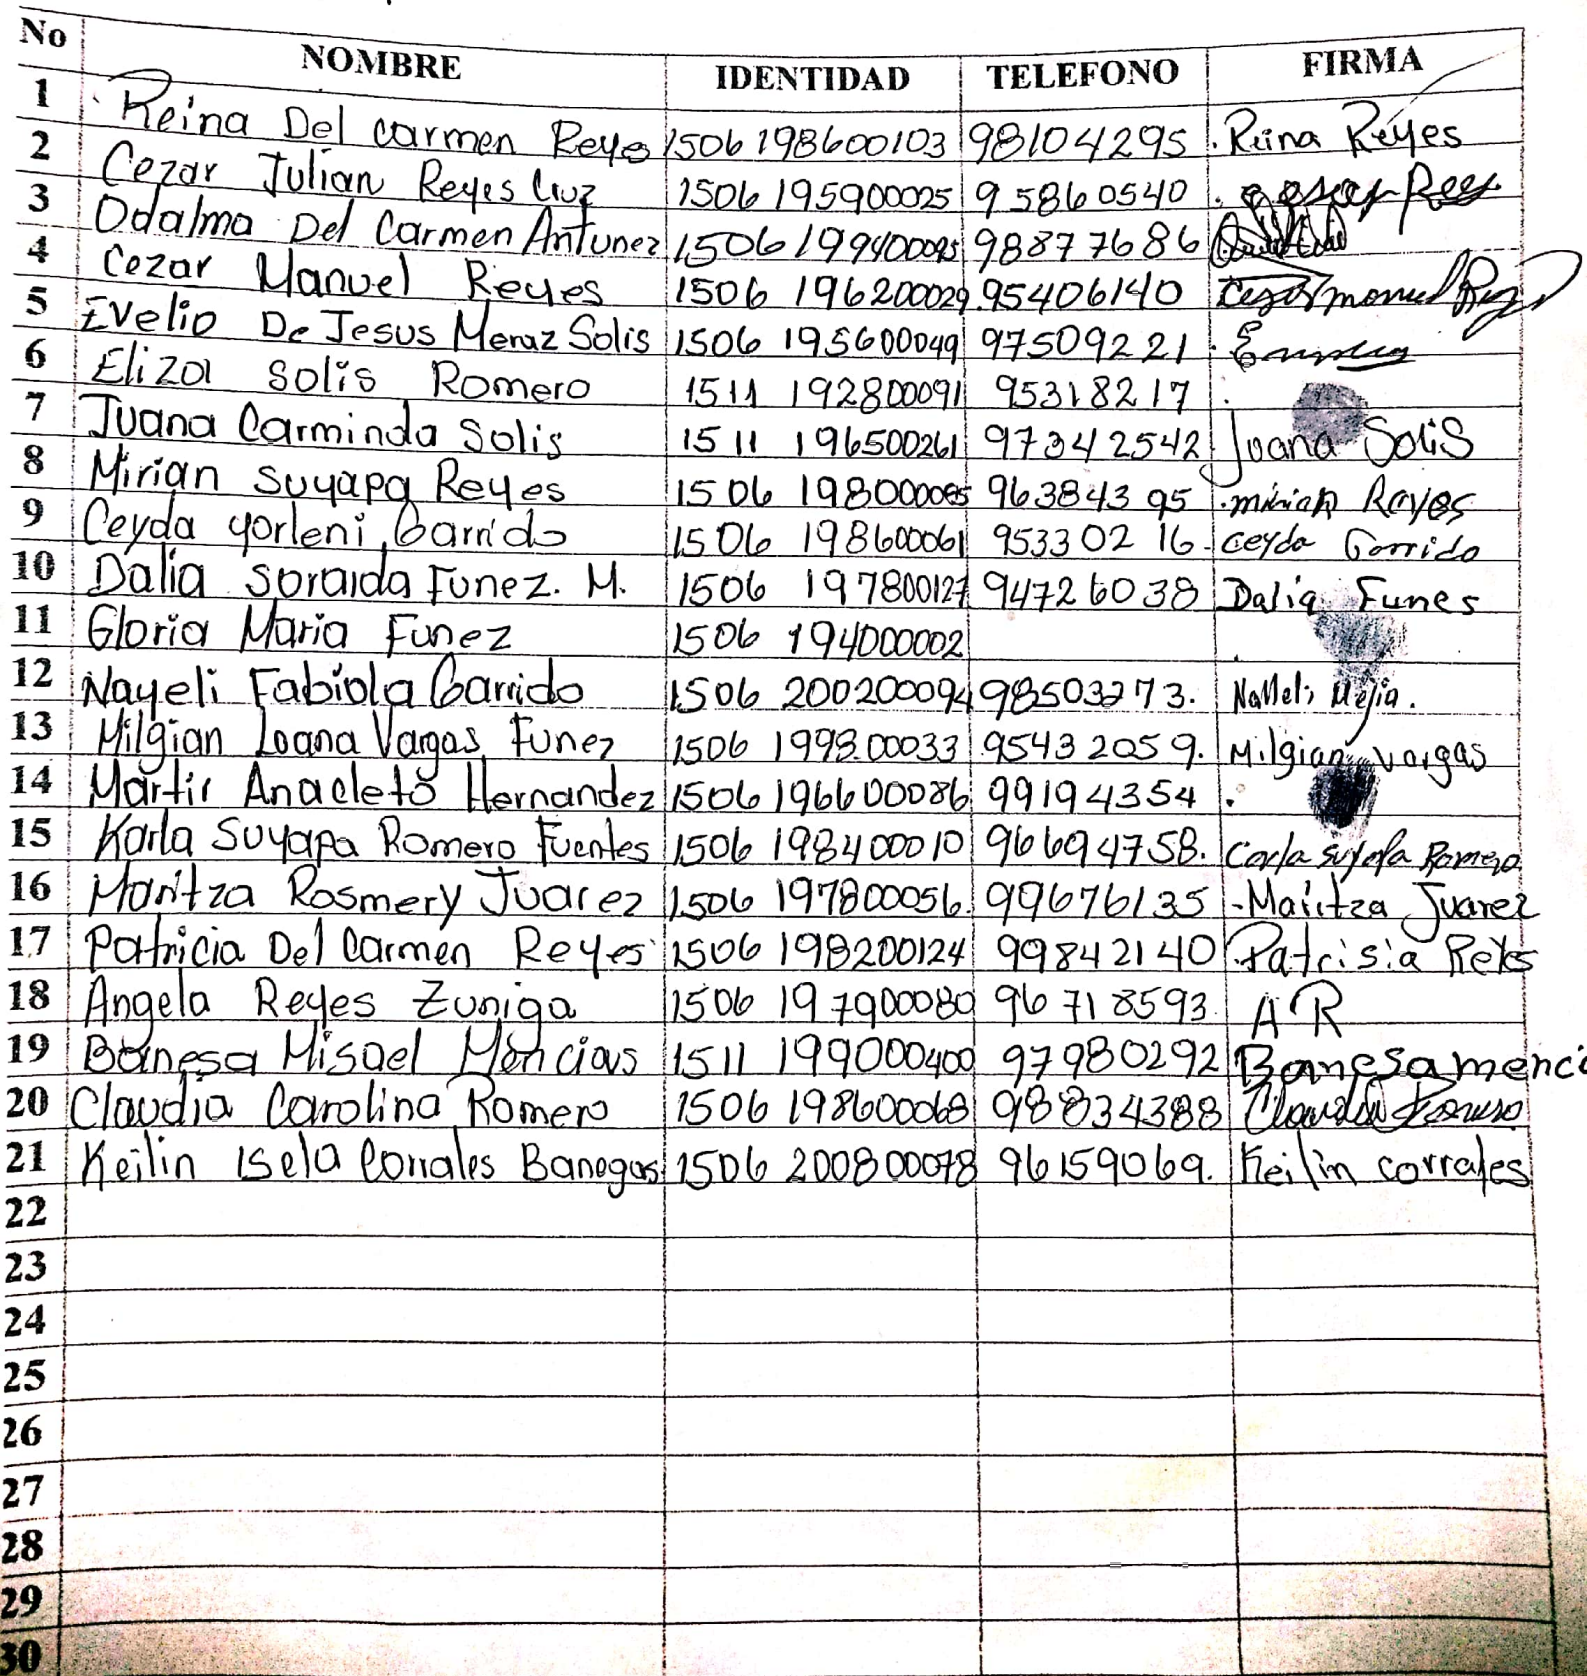 No NOMBRE IDENTIDAD TELEFONO FIRMA
1 Reina Del carmen Reyes 1506 198600103 98104295 Reina Reyes
2 Cezar Julian Reyes Cruz 1506 195900025 95860540
3 Odalma Del Carmen Antunez 1506 199400095 98877686
4 Cezar Manuel Reyes 1506 196200029 95406140 manuel
5 Evelio De Jesus Meraz Solis 1506 195600049 97509221
6 Eliza Solis Romero 1511 192800091 95318217
7 Juana Carminda Solis 1511 196500261 97342542 Juana Solis
8 Mirian suyapa Reyes 1506 198000085 96384395 miriah Rayes
9 Ceyda yorleni Garrido 1506 198600061 95330216 ceyda Garrido
10 Dalia soraida Funez. M. 1506 197800127 94726038 Dalia Funes
11 Gloria Maria Funez 1506 194000002
12 Nayeli Fabiola Garrido 1506 200200094 98503273. Nalleli Mejia.
13 Milgian Ioana Vargas Funez 1506 199800033 95432059. Milgian vargas
14 Martir Anacleto Hernandez 1506 196600086 99194354
15 Karla Suyapa Romero Fuentes 1506 198400010 96694758. Carla suyapa Romero
16 Maritza Rosmery Juarez 1506 197800056. 99676135 Maritza Juarez
17 Patricia Del Carmen Reyes 1506 198200124 99842140 Patrisia Reyes
18 Angela Reyes Zuniga 1506 197900080 96718593 A R
19 Banesa Misael Mencias 1511 199000400 97980292 Banesa menci
20 Claudia Carolina Romero 1506 198600068 98834388 Claudia Romero
21 Keilin Isela Corrales Banegas 1506 200800078 96159069. Keilin corrales
22
23
24
25
26
27
28
29
30